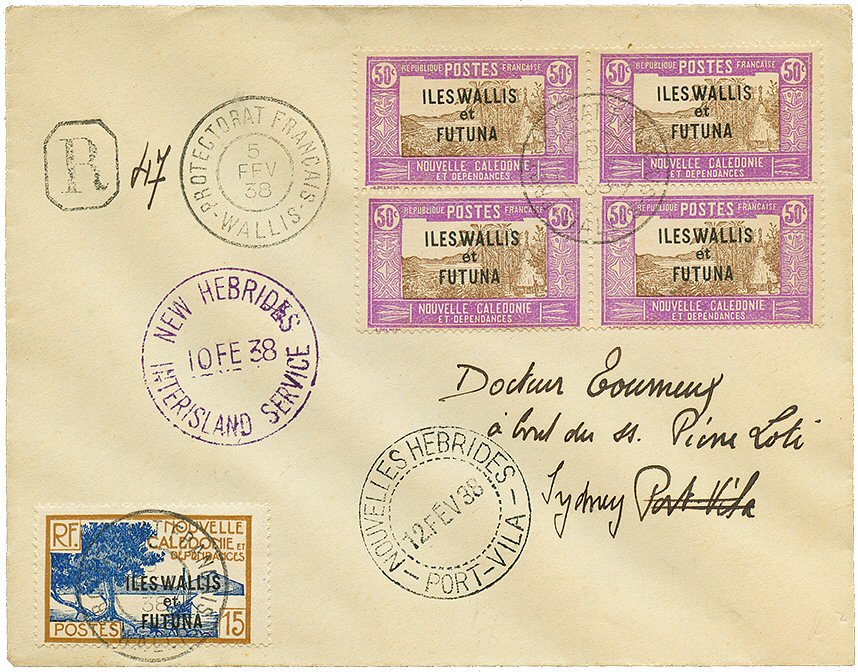 RÉPUBLIQUE POSTES FRANÇAISE
50c 50c
ILES WALLIS
et
FUTUNA
NOUVELLE CALÉDONIE
ET DÉPENDANCES
RÉPUBLIQUE POSTES FRANÇAISE
50c 50c
ILES WALLIS
et
FUTUNA
NOUVELLE CALÉDONIE
ET DÉPENDANCES
R 47
PROTECTORAT FRANÇAIS
5
FEV
38
-WALLIS-
RÉPUBLIQUE POSTES FRANÇAISE
50c 50c
ILES WALLIS
et
FUTUNA
NOUVELLE CALÉDONIE
ET DÉPENDANCES
RÉPUBLIQUE POSTES FRANÇAISE
50c 50c
ILES WALLIS
et
FUTUNA
NOUVELLE CALÉDONIE
ET DÉPENDANCES
NEW HEBRIDES
10 FE 38
INTERISLAND SERVICE
Docteur Tourneux
à bord du ss. Pierre Loti
Sydney Port-Vila
NOUVELLES HEBRIDES
12.FEV 38
-PORT-VILA-
RF. NOUVELLE
CALÉDONIE ET
DÉPENDANCES
ILES WALLIS
et
FUTUNA
POSTES 15